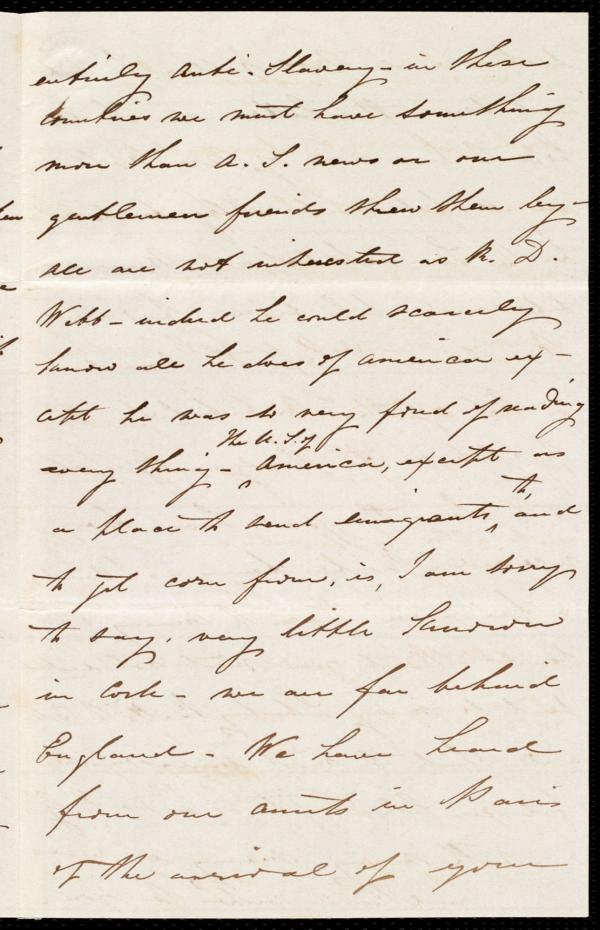 entirely Anti-Slavery - in these
countries we must have something
more than A. S. news or our
gentlemen friends throw them by -
all are not interested as R. D.
Webb - indeed he could scarcely
know all he does of America ex-
cept he was so very fond of reading
every thing - The U. S. of America, except as
a place to send emigrants to, and
to get corn from, is, I am sorry
to say, very little known
in Cork - we are far behind
England - We have heard
from our aunts in Paris
of the arrival of your